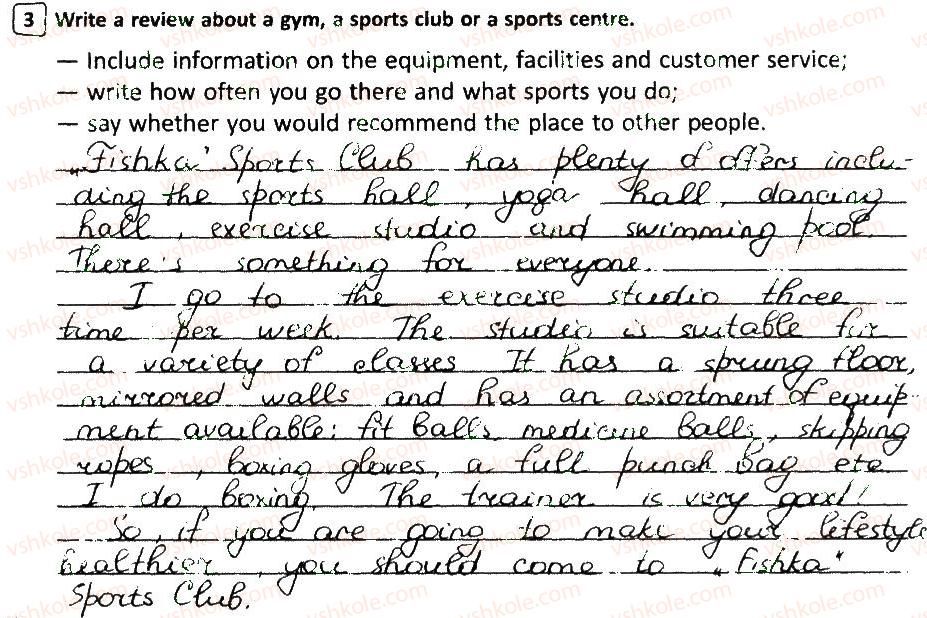 3 Write a review about a gym, a sports club or a sports centre.
— Include information on the equipment, facilities and customer service;
— write how often you go there and what sports you do;
— say whether you would recommend the place to other people.
„Fishka" Sports Club has plenty of offers inclu-
ding the sports hall, yoga hall, dancing
hall, exercise studio and swimming pool.
There's something for everyone.
I go to the exercise studio three
time per week. The studio is suitable for
a variety of classes It has a sprung floor,
mirrored walls and has an assortment of equip-
ment available: fit balls, medicine balls, skipping
ropes, boxing gloves, a full punch bag etc
I do boxing. The trainer is very good!
So, if you are going to make your lifestyle
healthier, you should come to „Fishka"
Sports Club.